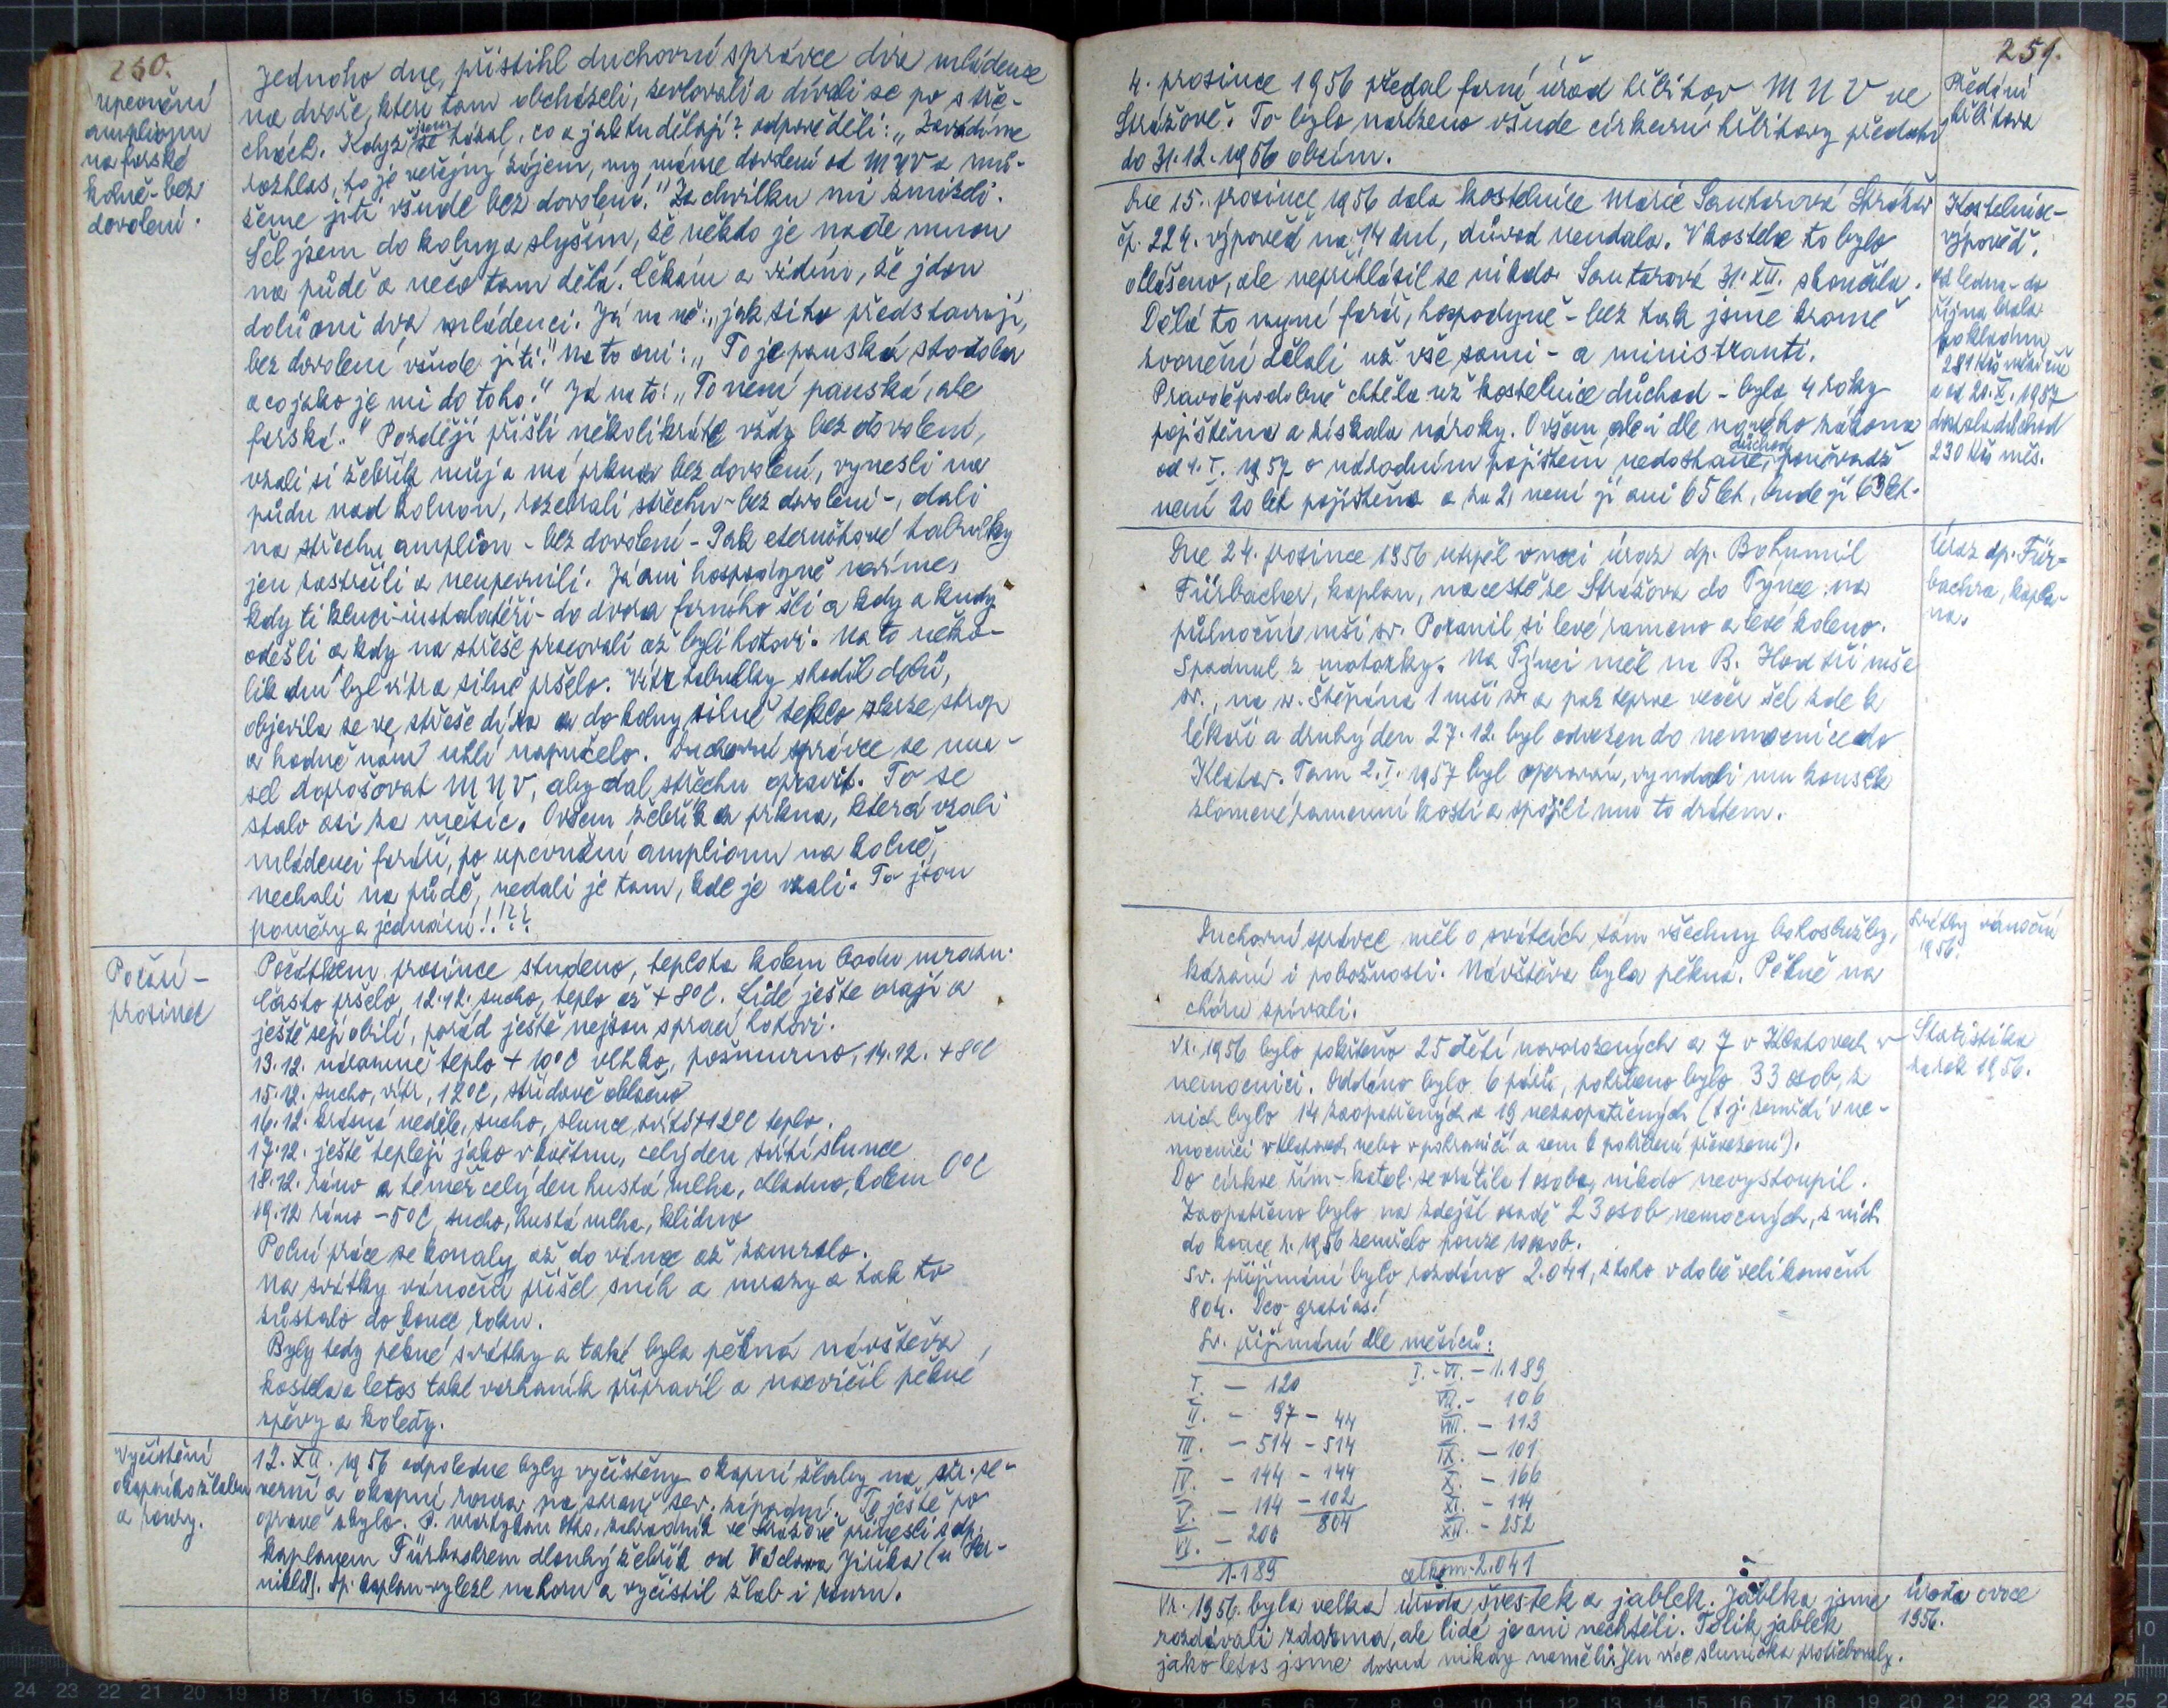 250.
upevnění
amplionu
na farské
kolně - bez
dovolení.
Jednoho dne, přistihl duchovní správce dva mládence
na dvoře, kteří tam obcházeli, šustovali a dívali se po stře-
chách. Když jsem se tázal, co a jak tu dělají? odpověděli: „Zavádíme
rozhlas, to je veřejný zájem, my máme dovolení od MNV a mů-
žeme jíti všude bez dovolení." Za chvilku mi zmizeli.
Šel jsem do kolny a slyším, že někdo je nade mnou
na půdě a něco tam dělá. Čekám a vidím, že jdou
dolů oni dva mládenci. Já na ně: „jak si to představují,
bez dovolení všude jíti." Na to oni: „To je panská stodola
a co jako je mi do toho." Já na to: „To není panská, ale
farská." Později přišli několikráte vždy bez dovolení,
vzali si žebřík můj a má prkna bez dovolení, vynesli na
půdu nad kolnou, rozebrali střechu - bez dovolení -, dali
na střechu amplion - bez dovolení - Pak eternitové tabulky
jen zastrčili a neupevnili. Já ani hospodyně nevíme,
kdy ti kluci-instalatéři - do dvora farního šli a kdy a kudy
odešli a kdy na střeše pracovali až byli hotovi. Na to něko-
lik dní byl vítr a silně pršelo. Vítr tabulky shodil dolů,
objevila se ve střeše díra a do kolny silně teklo skrze strop
a hodně nám uhlí napršelo. Duchovní správce se mu-
sel doprošovat MNV, aby dal střechu opravit. To se
stalo asi za měsíc. Ovšem žebřík a prkna, která vzali
mládenci faráři, po upevnění amplionu na kolně,
nechali na půdě, nedali je tam, kde je vzali. To jsou
poměry a jednání!!??
Počasí -
prosinec
Počátkem prosince studeno, teplota kolem bodu mrazu.
Často pršelo, 12.12. sucho, teplo až +8°C. Lidé ještě orají a
ještě sejí obilí, pořád ještě nejsou s prací hotovi.
13.12. náramně teplo + 10°C vlhko, pošmurno, 14.12. +8°C
15.12. sucho, vítr, 12°C, střídavě oblačno
16.12. krásná neděle, sucho, slunce svítí +12°C teplo.
17.12. ještě tepleji jako v květnu, celý den svítí slunce
18.12. ráno a téměř celý den hustá mlha, chladno, kolem 0°C
19.12 ráno -5°C, sucho, hustá mlha, klidno
Polní práce se konaly až do vánoc až zamrzlo.
Na svátky vánoční přišel sníh a mrazy a tak to
zůstalo do konce roku.
Byly tedy pěkné svátky a také byla pěkná návštěva
kostela a letos také varhaník připravil a nacvičil pěkné
zpěvy a koledy.
Vyčistění
okapního žlabu
a roury.
12. XII. 1956 odpoledne byly vyčistěny okapní žlaby na str. se-
verní a okapní roura na straně sev. západní. To ještě po
opravě zbylo. P. Otto, zahradník ve Strážově přinesli s dp.
kaplanem Fürbachrem dlouhý žebřík od Václava Jiříka
dp. kaplan vylezl nahoru a vyčistil žlab i rouru.
251.
4. prosince 1956 předal farní úřad hřbitov MNV ve
Strážově. To bylo nařízeno všude církevní hřbitovy předati
do 31.12.1956 obcím.
Předání
hřbitova
Dne 15. prosince 1956 dala kostelnice Marie Soutarová Strážov
čp. 224. výpověď na 14 dní, důvod neudala. V kostele to bylo
ohlášeno, ale nepřihlásil se nikdo. Soutarová 31. XII. skončila.
Dělá to nyní farář, hospodyně - bez tak jsme kromě
zvonění dělali už vše sami - a ministranti.
Pravděpodobně chtěla už kostelnice důchod - byla 4 roky
pojištěna a získala nároky. Ovšem ale i dle nového zákona
od 1. I. 1957 o národním pojištění nedostane důchod, poněvadž
není 20 let pojištěna a za 2, není jí ani 65 let, bude jí 63 let.
Kostelnice -
výpověď.
od ledna - do
října brala
pokladnu
281 Kčs měsíčně
a od 20. X. 1957
dostala důchod
230 Kčs měs.
Dne 24. prosince 1956 utrpěl v noci úraz dp. Bohumil
Fürbacher, kaplan, na cestě ze Strážova do Týnce na
půlnoční mši sv. Poranil si levé rameno a levé koleno.
Spadnul z motorky. Na Týnci měl na B. Hod tři mše
sv., na sv. Štěpána 1 mši sv. a pak teprve večer šel zde k
lékaři a druhý den 27.12. byl odvezen do nemocnice do
Klatov. Tam 2. I. 1957 byl operován, vyndali mu kousek
zlomené ramenní kosti a spojili mu to drátem.
Úraz dp. Für-
bachra, kapla-
na.
Duchovní správce měl o svátcích sám všechny bohoslužby,
kázání i pobožnosti. Návštěva byla pěkná. Pěkně na
chóru zpívali.
Svátky vánoční
1956.
V r. 1956 bylo pokřtěno 25 dětí novorozených a 7 v Klatovech v
nemocnici. Oddáno bylo 6 párů, pohřbeno bylo 33 osob, z
nich bylo 14 zaopatřených a 19 nezaopatřených (t.j. zemřelí v ne-
mocnici v Klatovech nebo v pohraničí a sem k pohřbení převezeni).
Do církve řím-katol. se vrátila 1 osoba, nikdo nevystoupil.
Zaopatřeno bylo na zdejší osadě 23 osob nemocných, z nich
do konce r. 1956 zemřelo pouze 10 osob.
Sv. přijímání bylo rozdáno 2.041, z toho v době velikonoční
804. Deo gratias!
Statistika
za rok 1956.
Sv. přijímání dle měsíců:
I. - 120 I.-VI. - 1.189
II. - 97 - 44 VII. - 106
III. - 514 - 514 VIII. - 113
IV. - 144 - 144 IX. - 101
V. - 114 - 102 X. - 166
VI. - 200 804 XI. - 114
XII. - 252
1.189 celkem 2.041
V r. 1956. byla velká úroda švestek a jablek. Jablka jsme
rozdávali zdarma, ale lidé je ani nechtěli. Tolik jablek
jako letos jsme dosud nikdy neměli. Jen více sluníčka potřebovaly.
Úroda ovoce
1956.